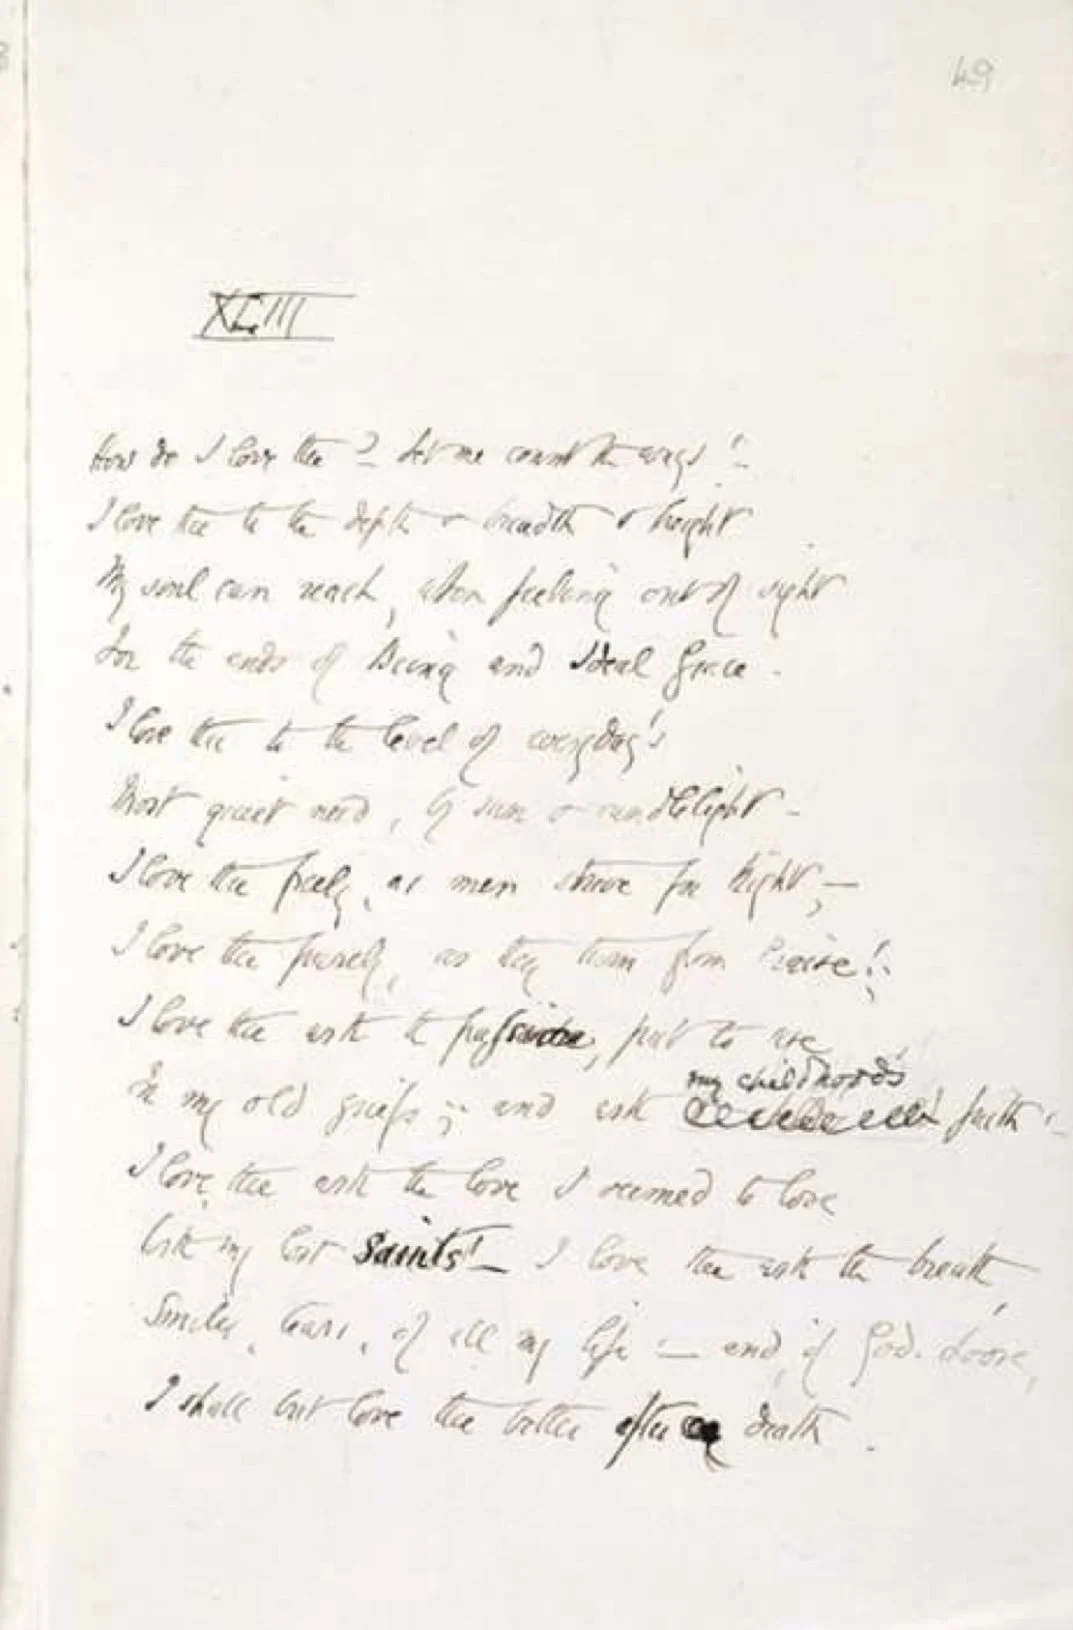 49
XLIII
How do I love thee? Let me count the ways! –
I love thee to the depth & breadth & height
My soul can reach, when feeling out of sight
For the ends of Being and Ideal Grace.
I love thee to the level of everyday's
Most quiet need, by sun & candlelight –
I love thee freely, as men strive for Right; –
I love thee purely, as they turn from Praise!;
I love thee with the passion, put to use
my childhood's
In my old griefs; – and with faith! –
I love thee with the love I seemed to lose
With my lost Saints! – I love thee with the breath,
Smiles, tears, of all my life! – and, if God choose,
I shall but love thee better after death.